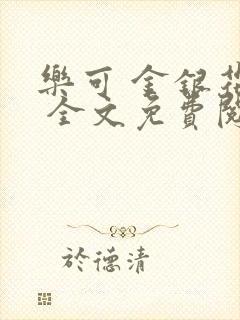 樂可 金銀花
全文免費閱
於德清